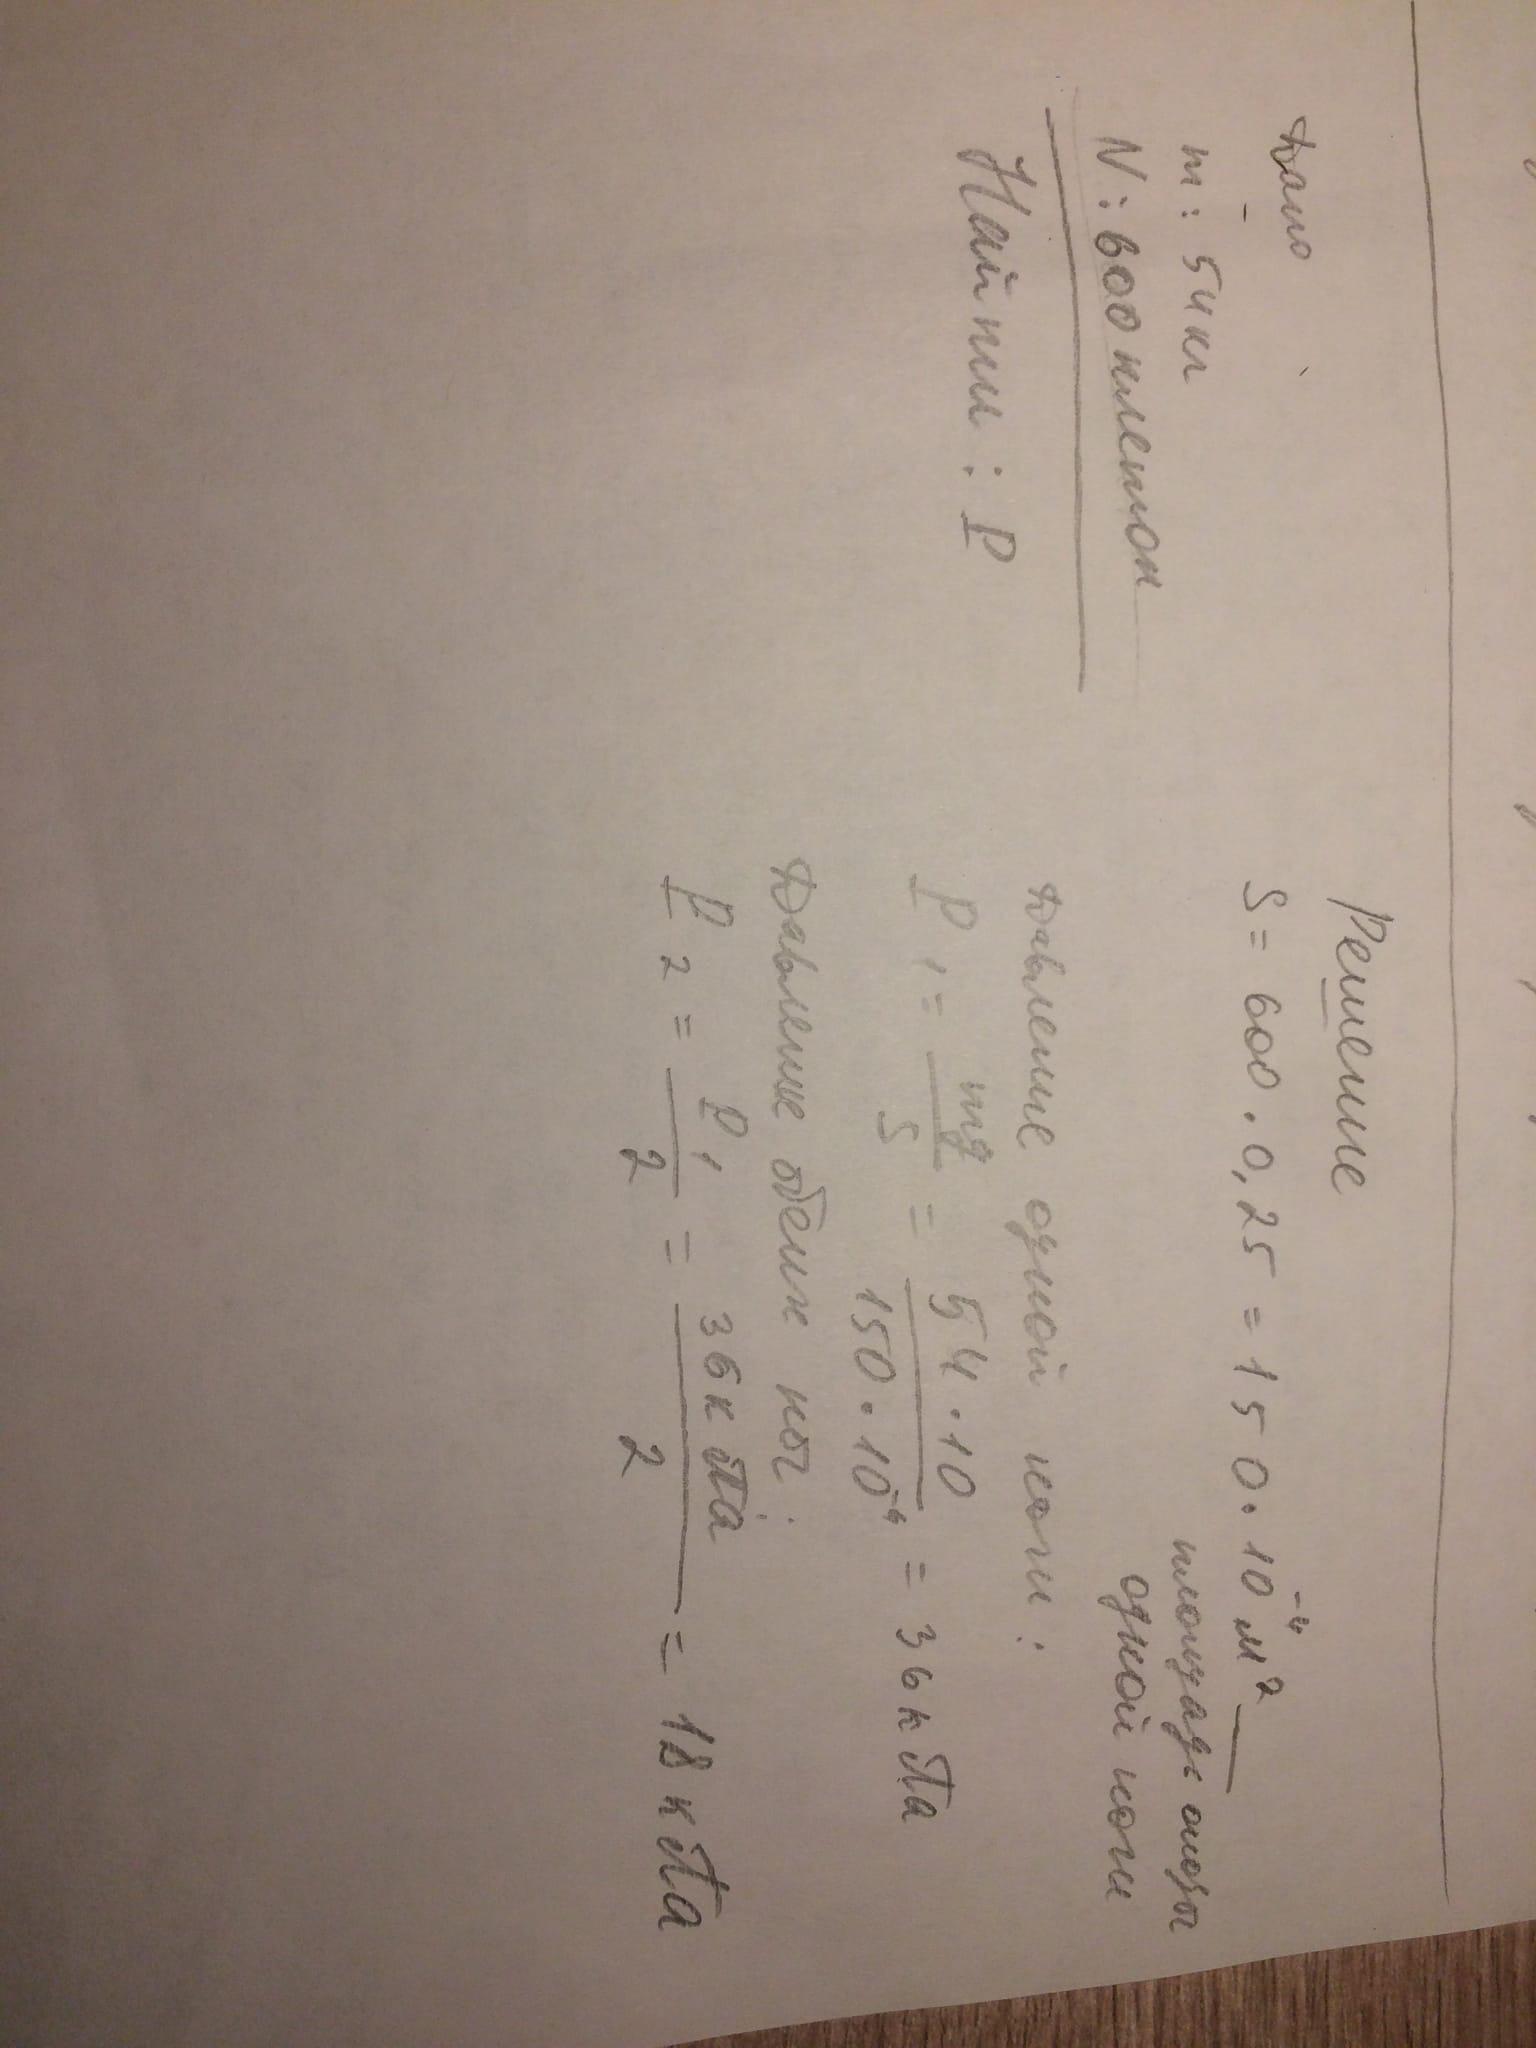 Дано
m: 54кг
N: 600 клеток
Найти: P
Решение
S = 600 · 0,25 = 150 · 10⁻⁴ м² —
площадь опоры
одной ноги
Давление одной ноги:
P₁ = mg/S = 54 · 10/150 · 10⁻⁴ = 36 кПа
Давление обеих ног:
P₂ = P₁/2 = 36 кПа/2 = 18 кПа